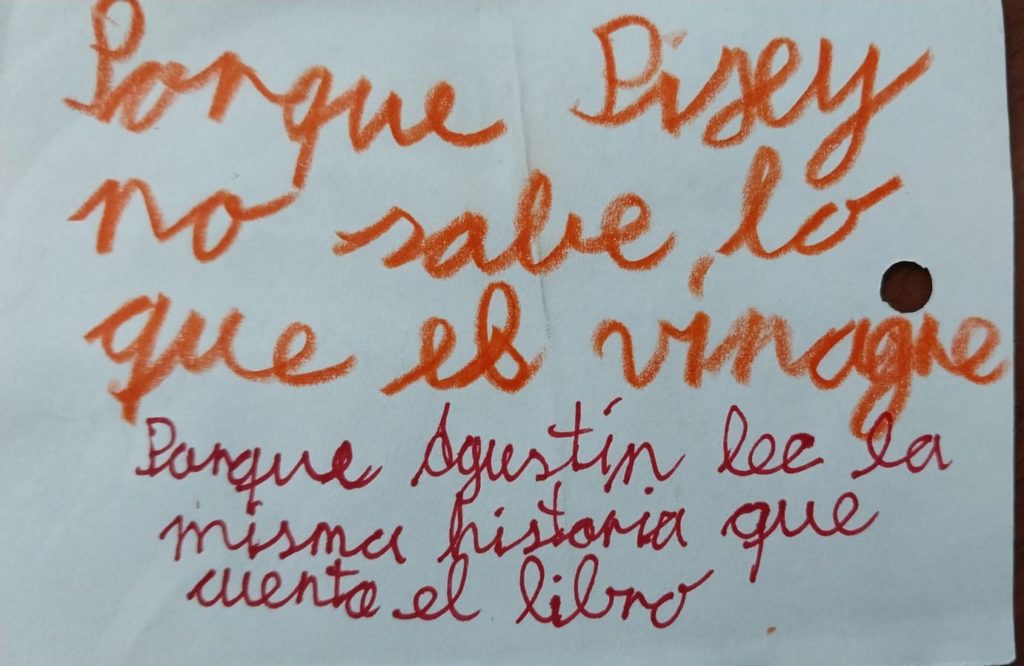 Porque Pisey
no sabe lo
que es vinagre
Porque Agustín lee la
misma historia que
cuento el libro